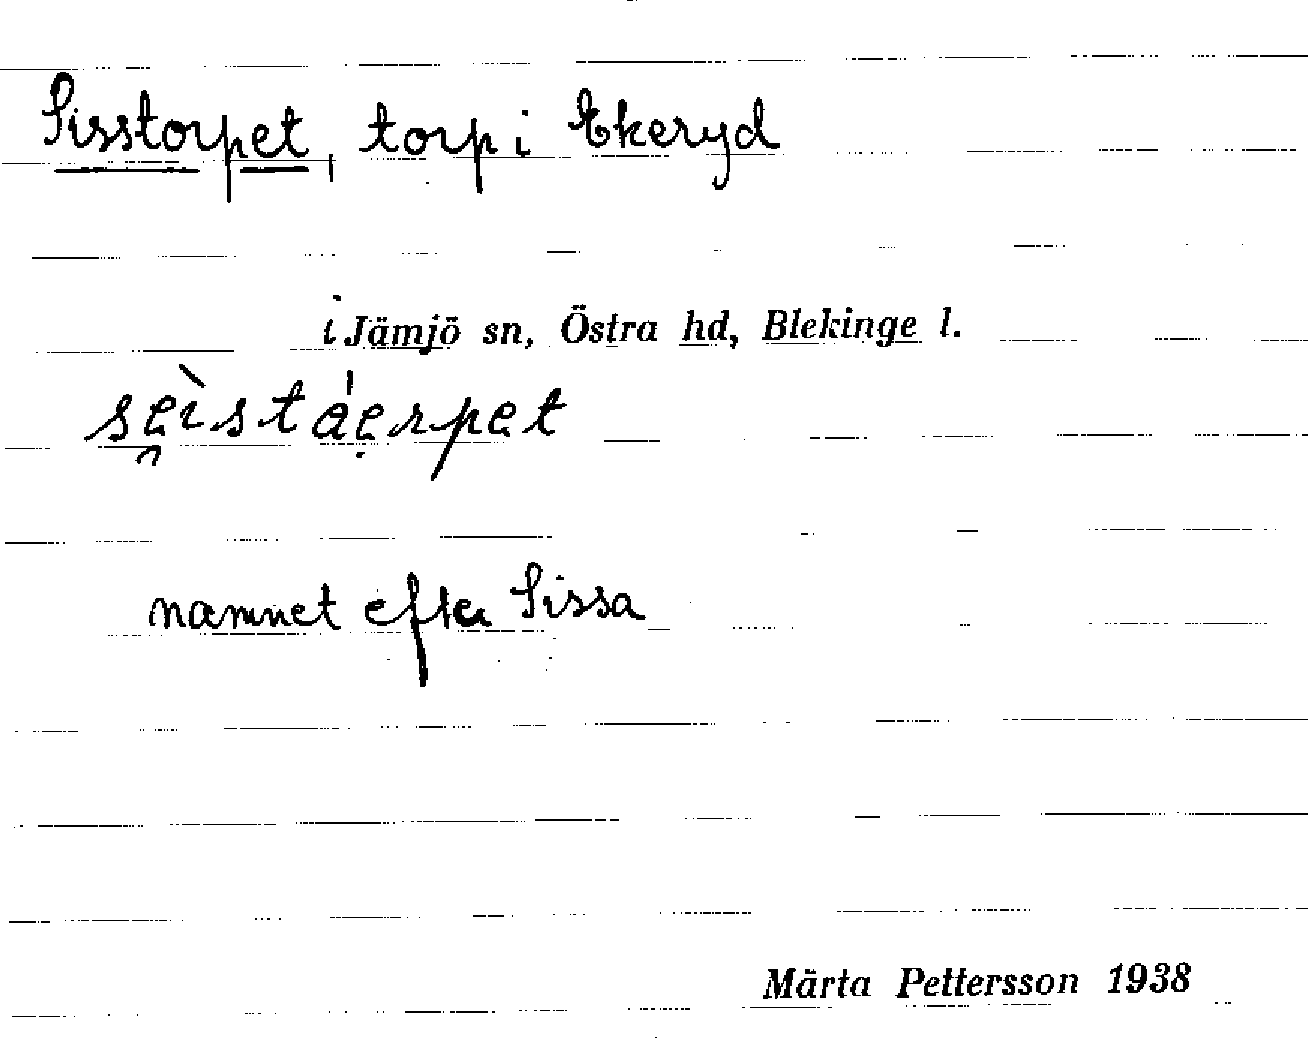 Sisstorpet, torp i Ekeryd
i Jämjö sn, Östra hd, Blekinge l.
sèistáerpet
namnet efter Sissa
Märta Pettersson 1938